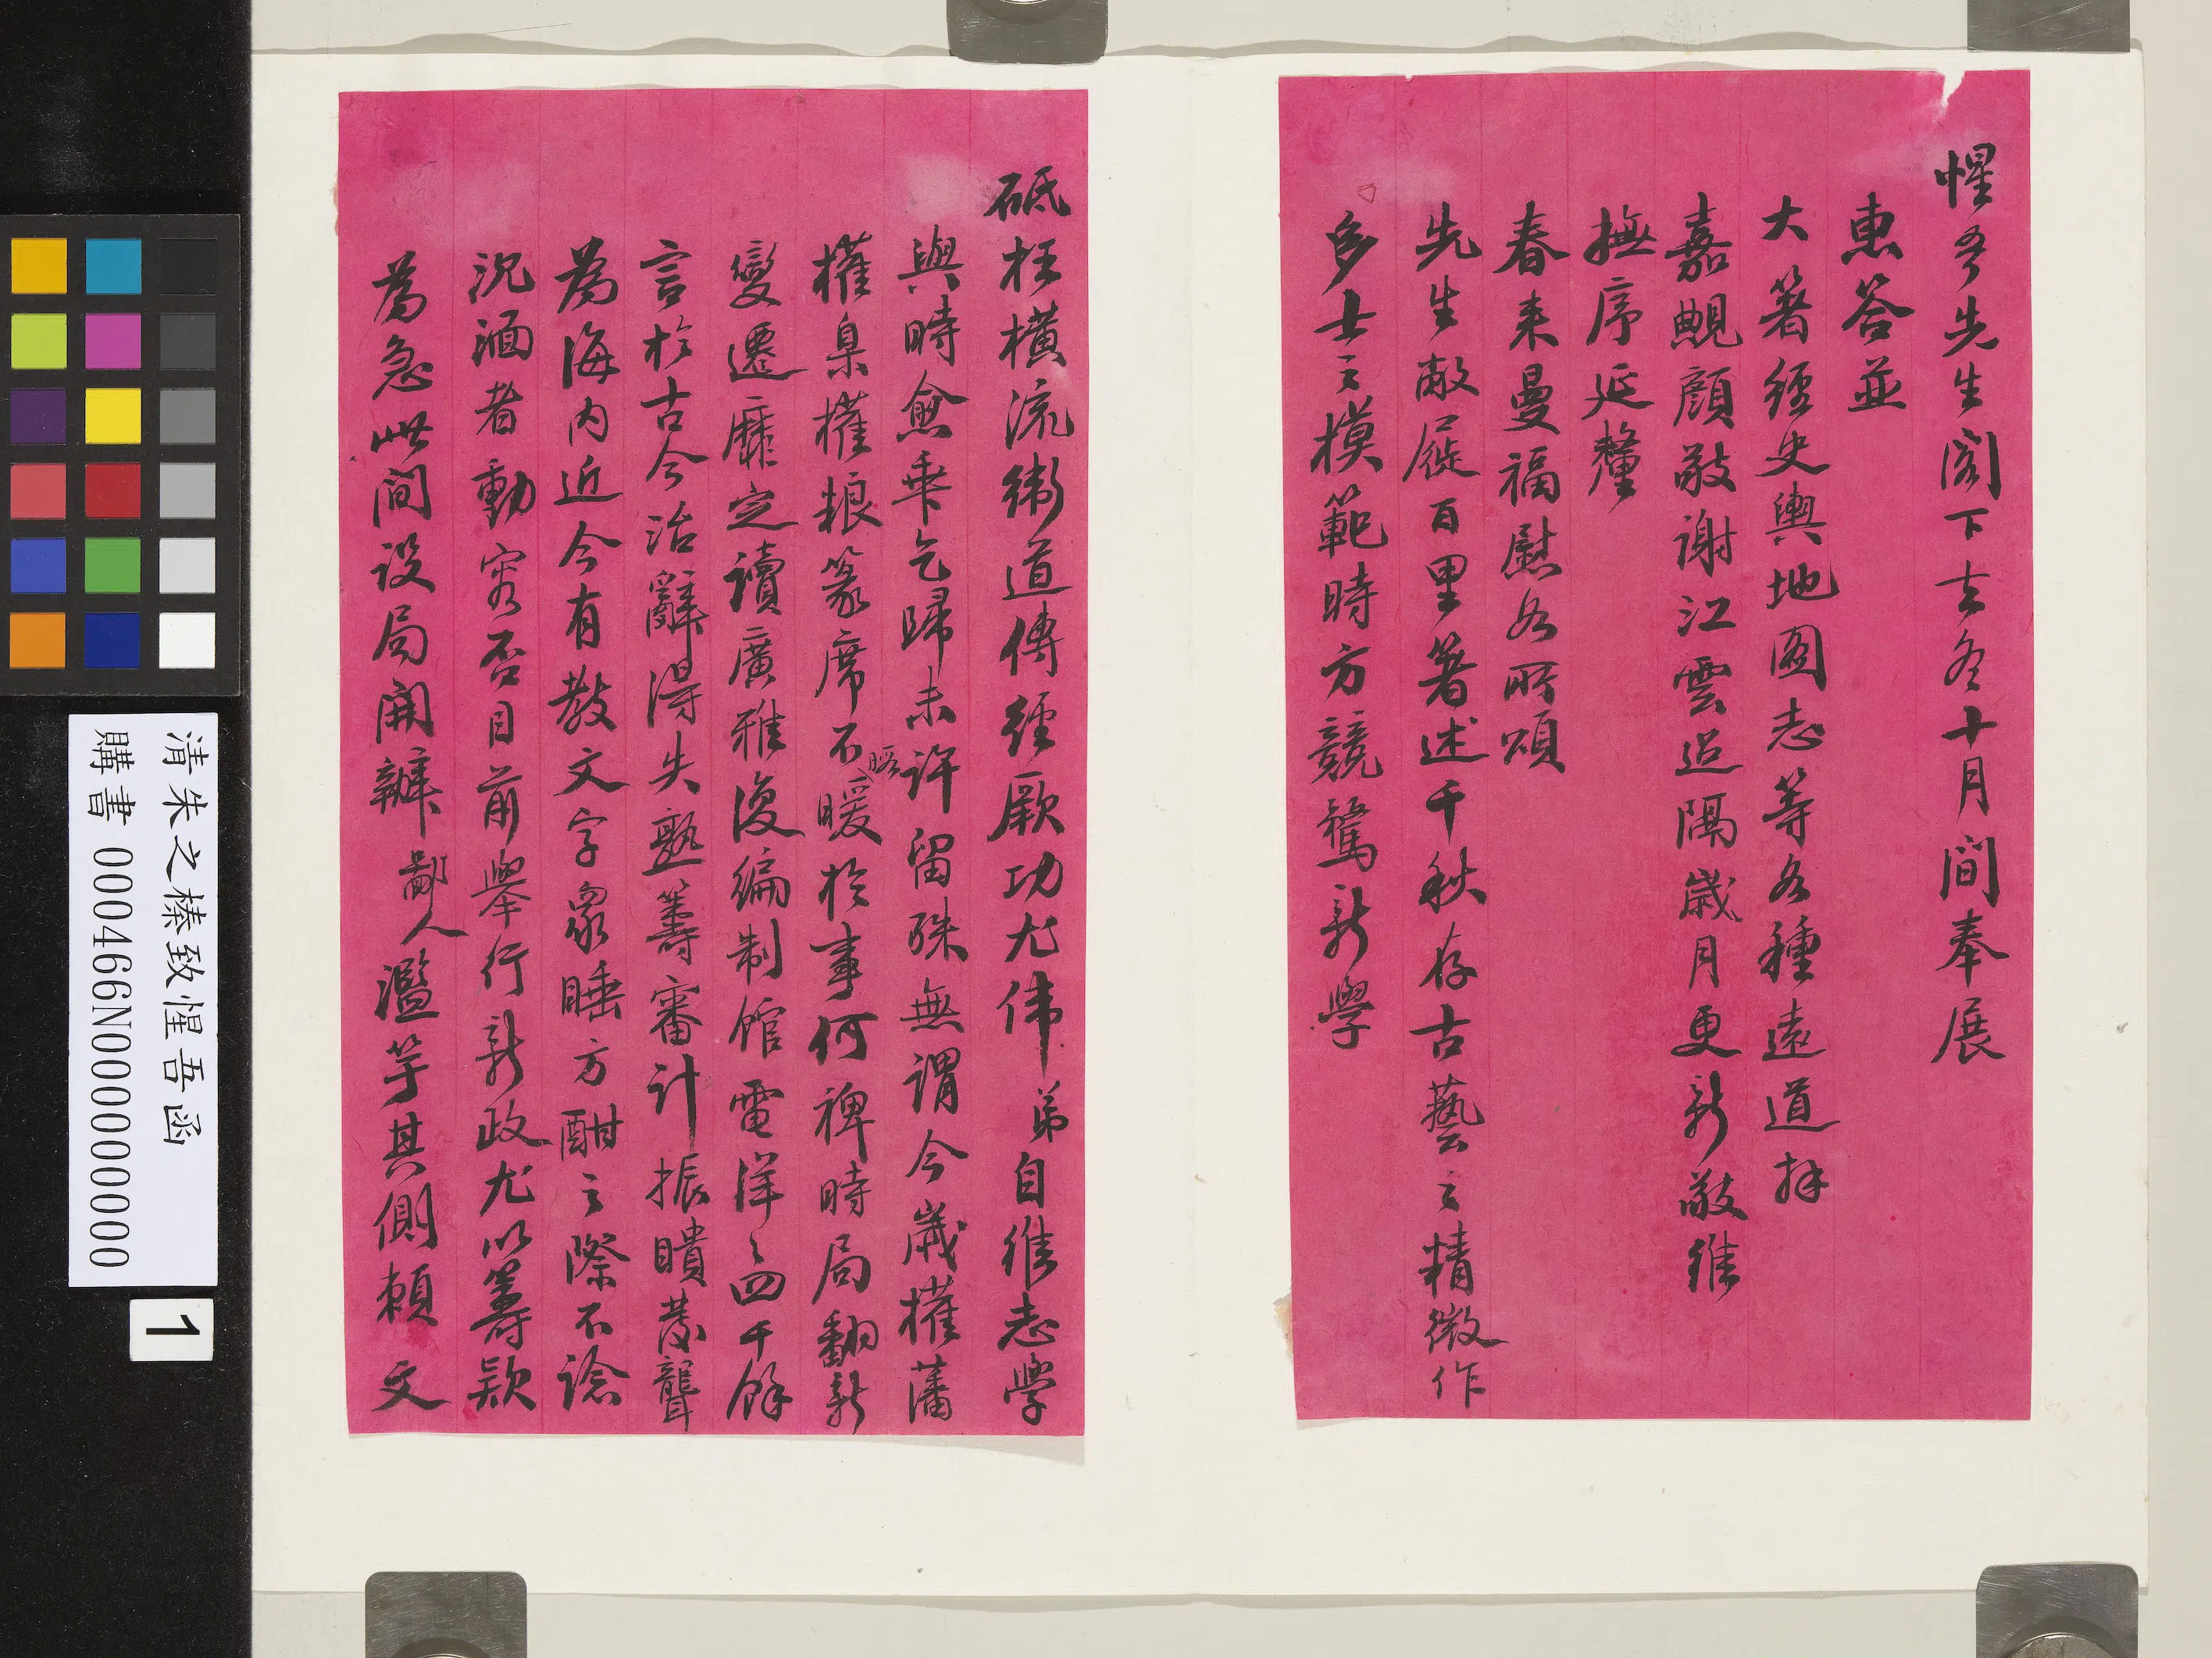 惺吾先生閣下去冬十月間奉展
惠答並
大箸經史輿地圖志等各種遠道拜
嘉貺顏敬謝江雲迢隔歲月更新敬維
撫序延釐
春來曼福慰如所頌
先生敝屣百里箸述千秋存古藝之精微作
多士之模範時方競騖新學
砥柱橫流衛道傳經厥功尤偉弟自維志學
與時兪乖乞歸未許留殊無謂今歲權藩
權臬權糧篆席不暇暖於事何裨時局翻新
變遷靡定讀廣雅復編制館電洋洋四千餘
言於古今治辭得失熟籌審計振聵發聾
為海內近今有數文字眾睡方酣之際不諗
沉湎者動容否目前舉行新政尤以籌款
為急此間設局開辦鄙人濫竽其側賴文
清朱之榛致惺吾函
購書 000466N000000000
1